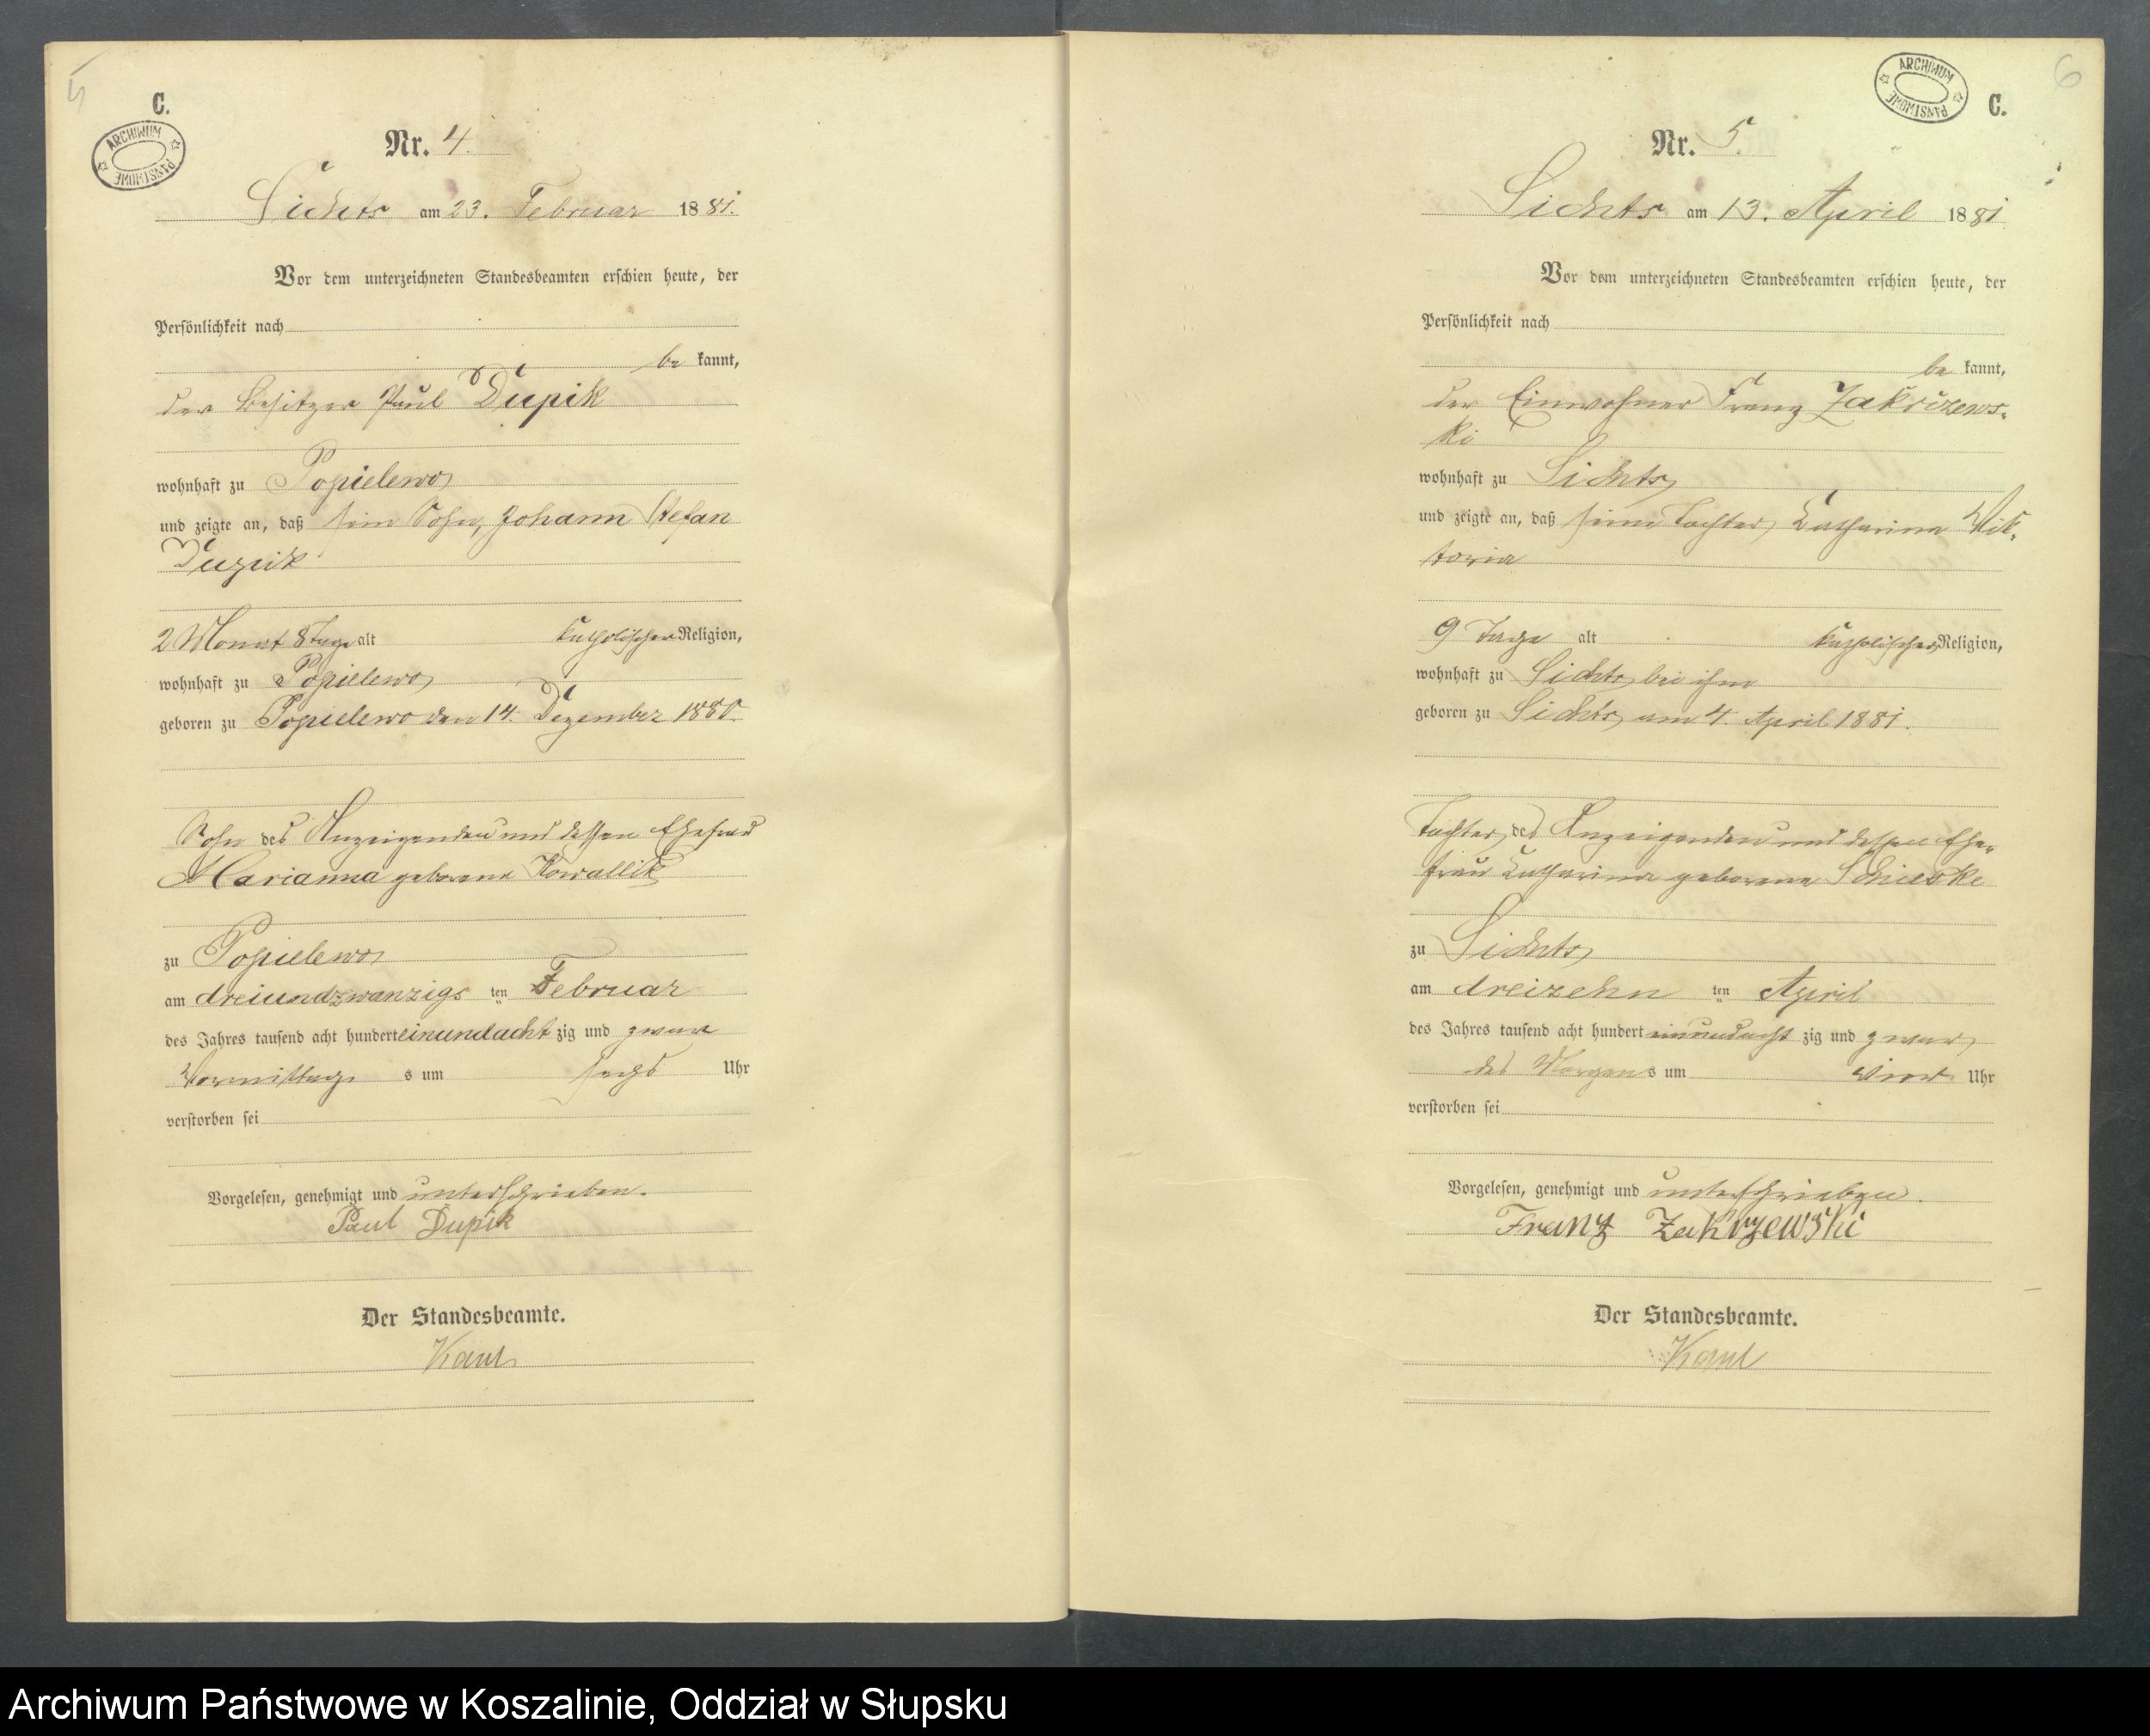 5
C.
ARCHIWUM PAŃSTWOWE
Nr. 4.
Lichts am 23. Februar 1881.
Vor dem unterzeichneten Standesbeamten erschien heute, der
Persönlichkeit nach
be kannt,
der Besitzer Paul Dupik
wohnhaft zu Popielewo
und zeigte an, daß sein Sohn, Johann Stefan
Dupik
2 Monat 8 Tage alt katholischer Religion,
wohnhaft zu Popielewo
geboren zu Popielewo den 14. Dezember 1880.
Sohn des Anzeigenden und dessen Ehefrau
Marianna geborene Kowallik
zu Popielewo
am dreiundzwanzigs ten Februar
des Jahres tausend acht hundert einundacht zig und zwar
Vormittag s um sechs Uhr
verstorben sei
Vorgelesen, genehmigt und unterschrieben.
Paul Dupik
Der Standesbeamte.
Kaul
6
ARCHIWUM PAŃSTWOWE
C.
Nr. 5.
Lichts am 13. April 1881
Vor dem unterzeichneten Standesbeamten erschien heute, der
Persönlichkeit nach
be kannt,
der Einwohner Franz Zakrizews-
ki
wohnhaft zu Lichts
und zeigte an, daß seine Tochter, Katharina Vik-
toria
9 Tage alt katholischer Religion,
wohnhaft zu Lichts bei ihm
geboren zu Lichts, am 4. April 1881.
Tochter des Anzeigenden und dessen Ehe-
frau Katharina geborene
zu Lichts
am dreizehn ten April
des Jahres tausend acht hundert einundacht zig und zwar
des Morgen s um vier Uhr
verstorben sei
Vorgelesen, genehmigt und unterschrieben.
Franz Zakrzewski
Der Standesbeamte.
Kaul
Archiwum Państwowe w Koszalinie, Oddział w Słupsku